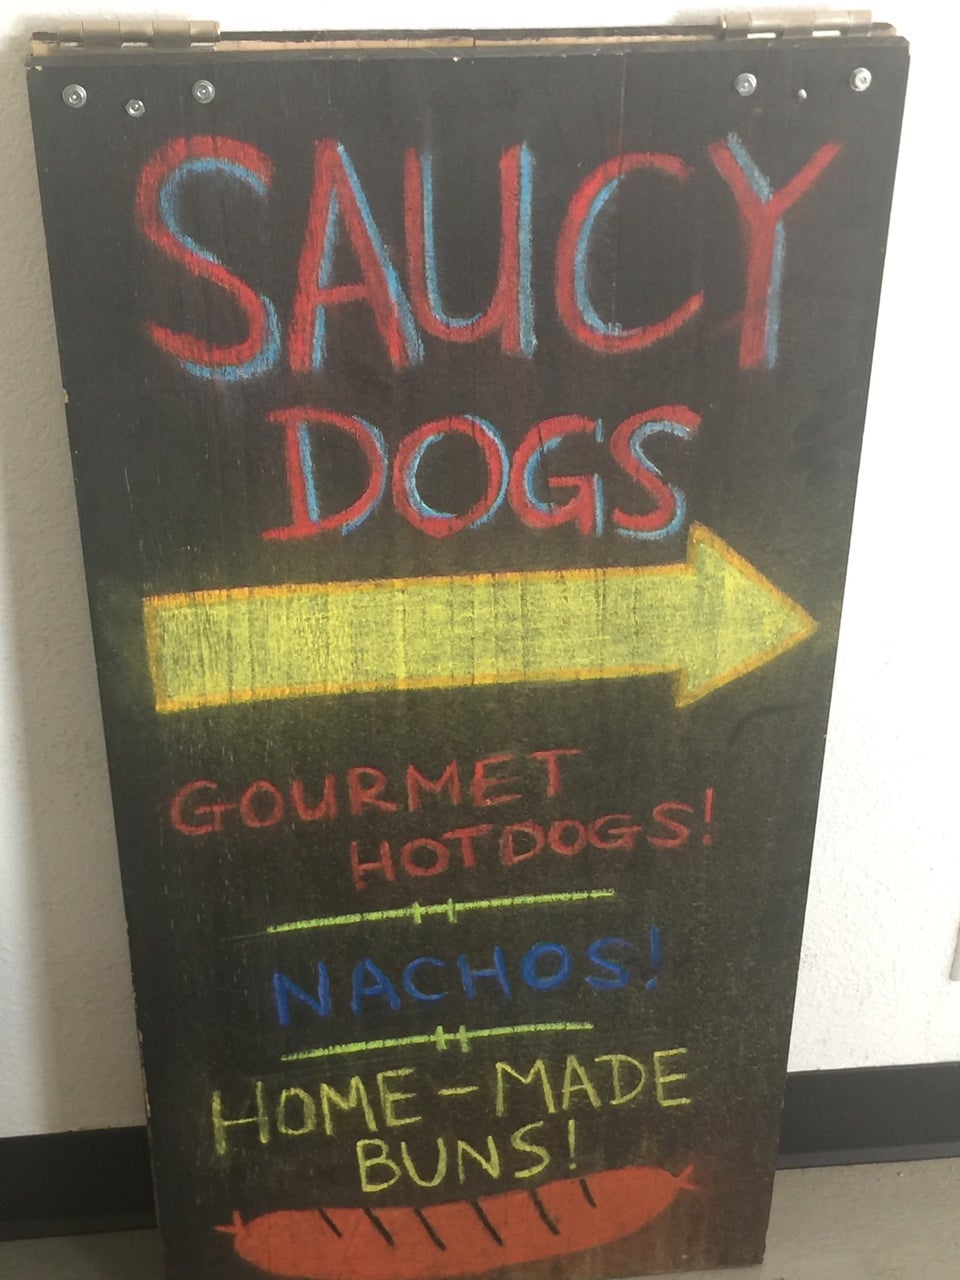 SAUCY
DOGS
GOURMET
HOTDOGS!
NACHOS!
HOME-MADE
BUNS!